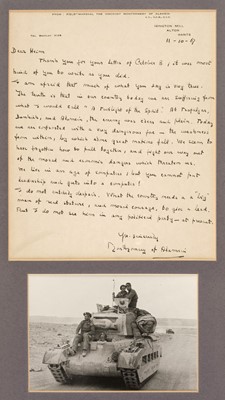 FROM: FIELD-MARSHAL THE VISCOUNT MONTGOMERY OF ALAMEIN
K.G., G.C.B., D.S.O.
ISINGTON MILL
ALTON
HANTS
TEL. BENTLEY 3126
11-10-67
Dear Heine
Thank you for your letter of October 8, it was most
kind of you to write as you did.
I am afraid that much of what you say is very true.
The truth is that in our country today we are suffering from
what I would call "A Twilight of the Spirit". At Trafalgar,
Dunkirk, and Alamein, the enemy was clear and plain. Today
we are confronted with a very dangerous foe in the weakness
from within, by which alone great nations fall. We seem to
have forgotten how to pull together, and fight our way out
of the moral and economic dangers which threaten us.
We live in an age of computers; but you cannot put
leadership and guts into a computer!
I do not entirely despair. What the country needs is a big
man of real stature, and moral courage, to give a lead,
But I do not see him in any political party — at present.
Yrs. sincerely
Montgomery of Alamein